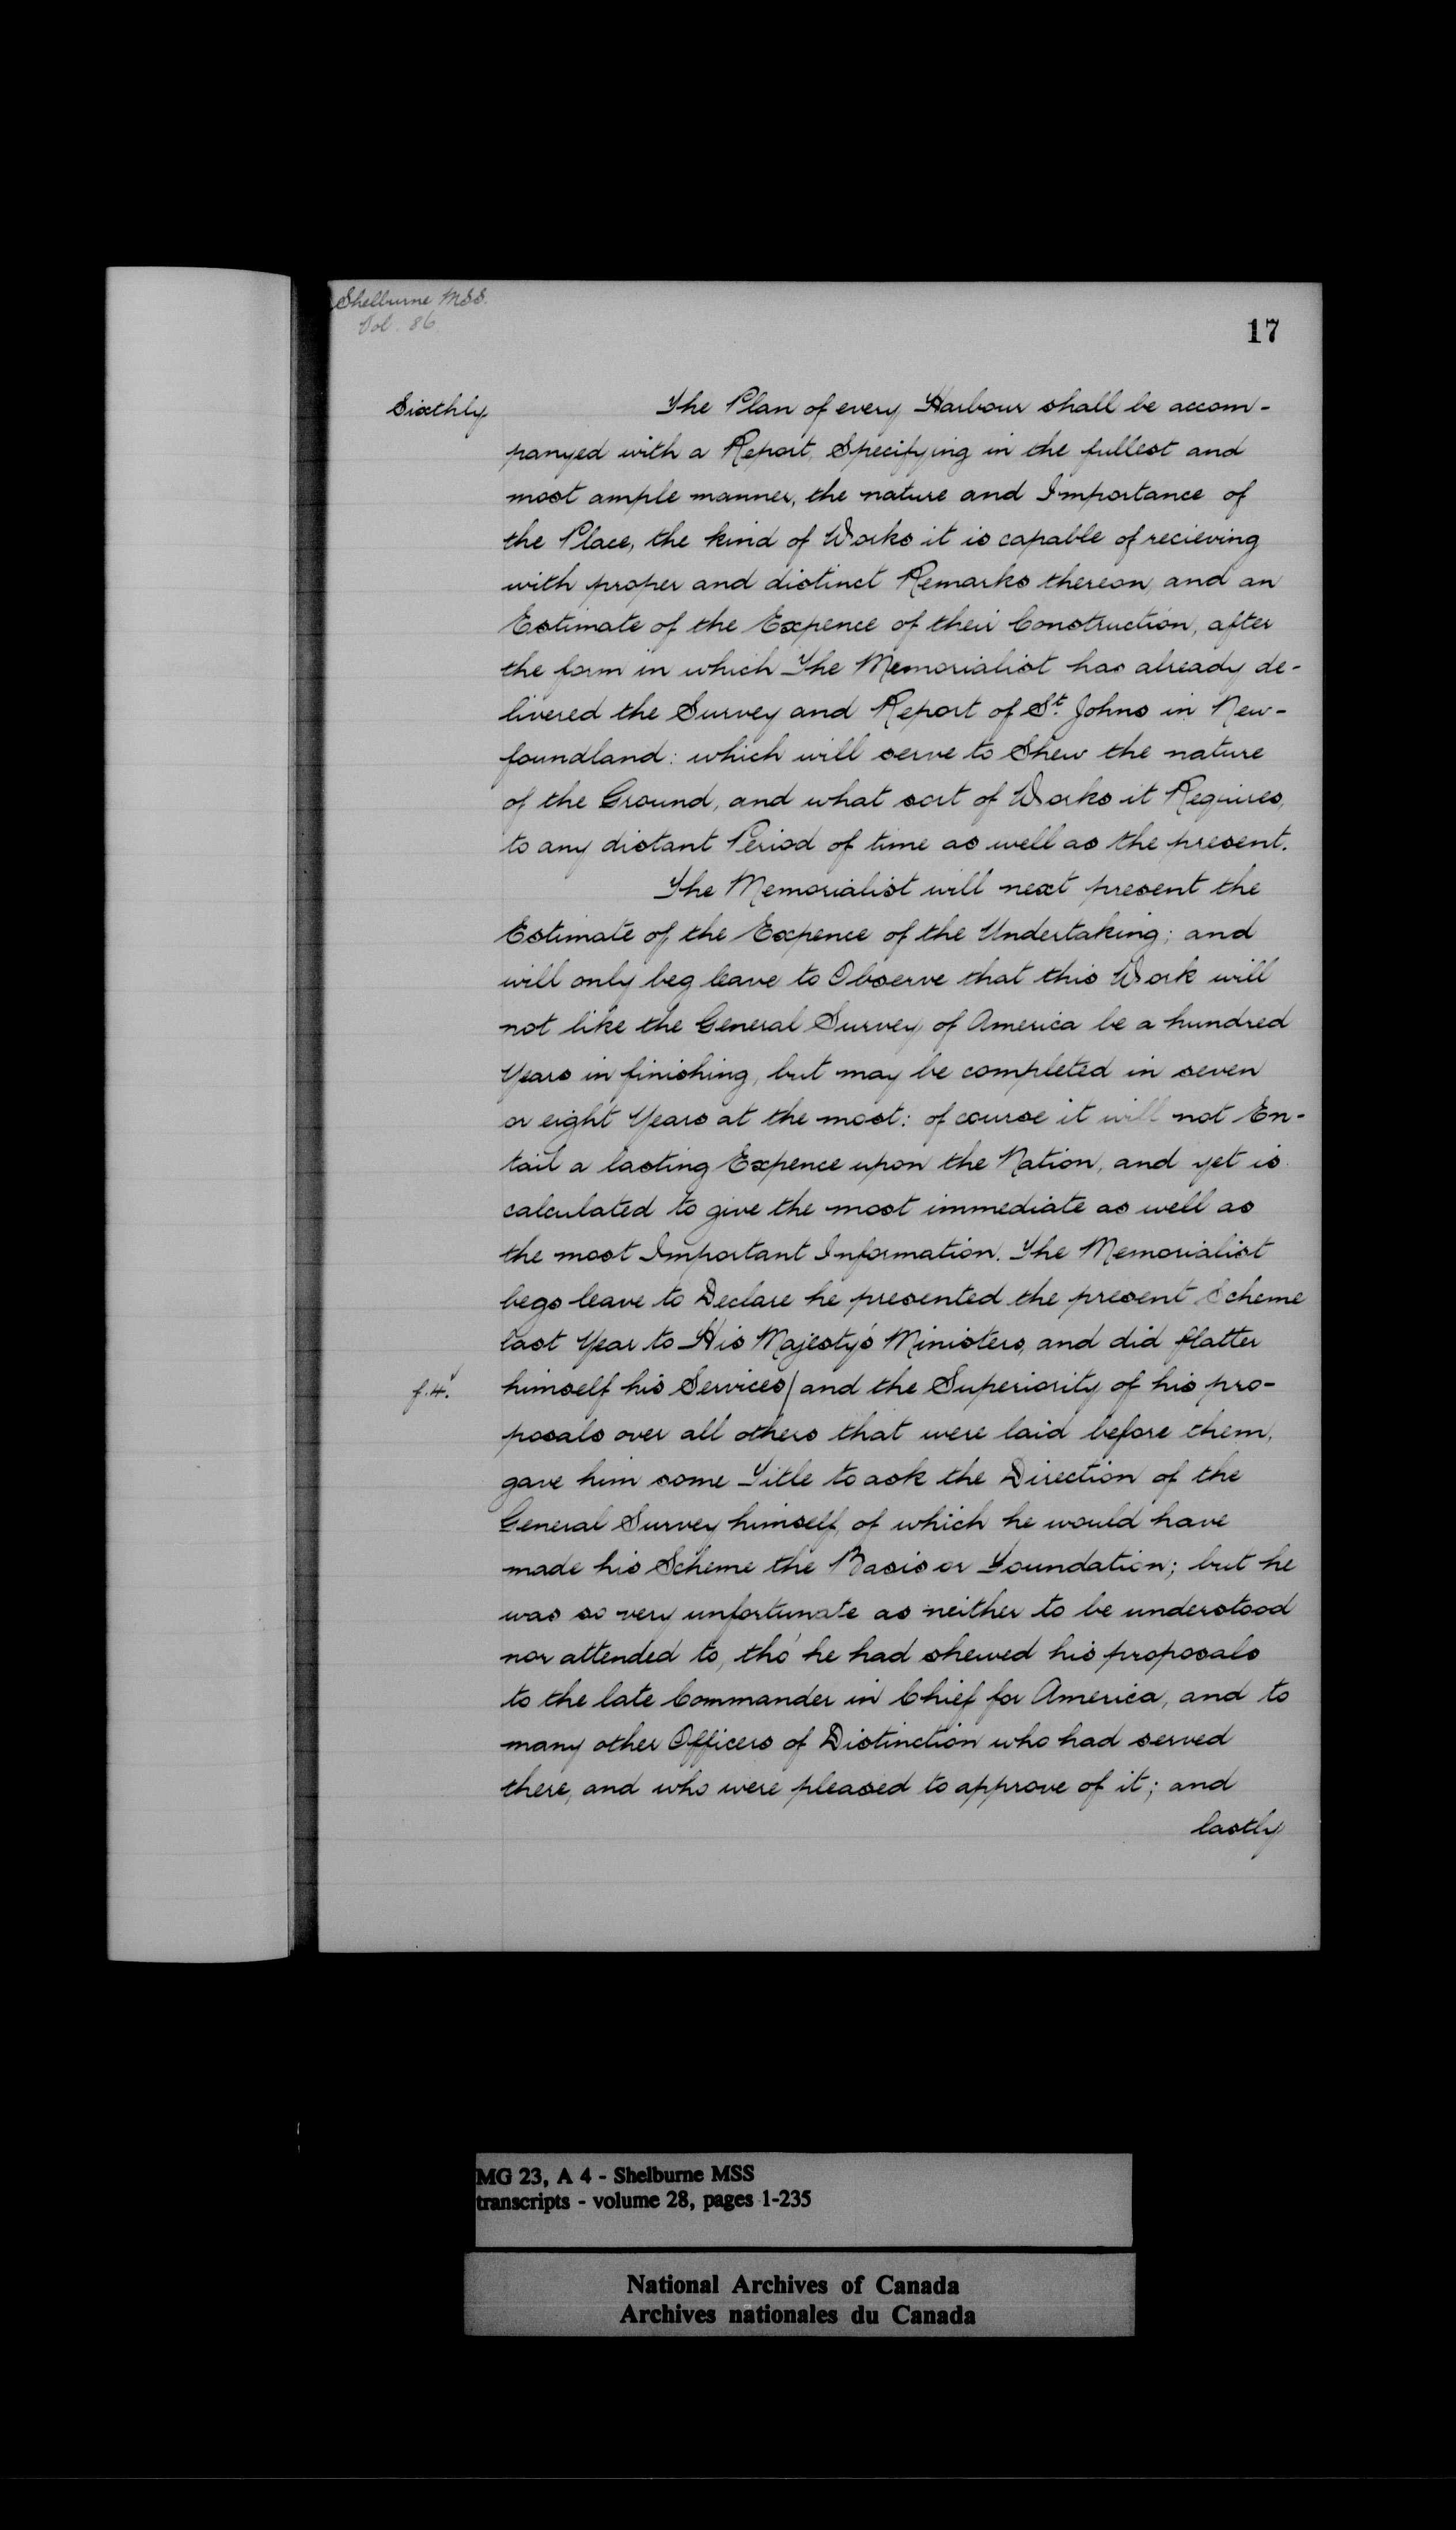 Shelburne MSS.
Vol. 86.
17
Sixthly The Plan of every Harbour shall be accom-
panyed with a Report, Specifying in the fullest and
most ample manner, the nature and Importance of
the Place, the kind of Works it is capable of recieving
with proper and distinct Remarks thereon, and an
Estimate of the Expence of their Construction, after
the form in which The Memorialist has already de-
livered the Survey and Report of St. Johns in New-
foundland: which will serve to Shew the nature
of the Ground, and what sort of Works it Requires,
to any distant Period of time as well as the present.
The Memorialist will next present the
Estimate of the Expence of the Undertaking; and
will only beg leave to Observe that this Work will
not like the General Survey of America be a hundred
Years in finishing, but may be completed in seven
or eight Years at the most: of course it will not En-
tail a lasting Expence upon the Nation, and yet is
calculated to give the most immediate as well as
the most Important Information. The Memorialist
begs leave to Declare he presented the present Scheme
last Year to His Majesty's Ministers, and did flatter
f.4. himself his Services/and the Superiority of his pro-
posals over all others that were laid before them,
gave him some Title to ask the Direction of the
General Survey himself, of which he would have
made his Scheme the Basis or Foundation; but he
was so very unfortunate as neither to be understood
nor attended to, tho' he had shewed his proposals
to the late Commander in Chief for America, and to
many other Officers of Distinction who had served
there, and who were pleased to approve of it; and
lastly
MG 23, A 4 - Shelburne MSS
transcripts - volume 28, pages 1-235
National Archives of Canada
Archives nationales du Canada